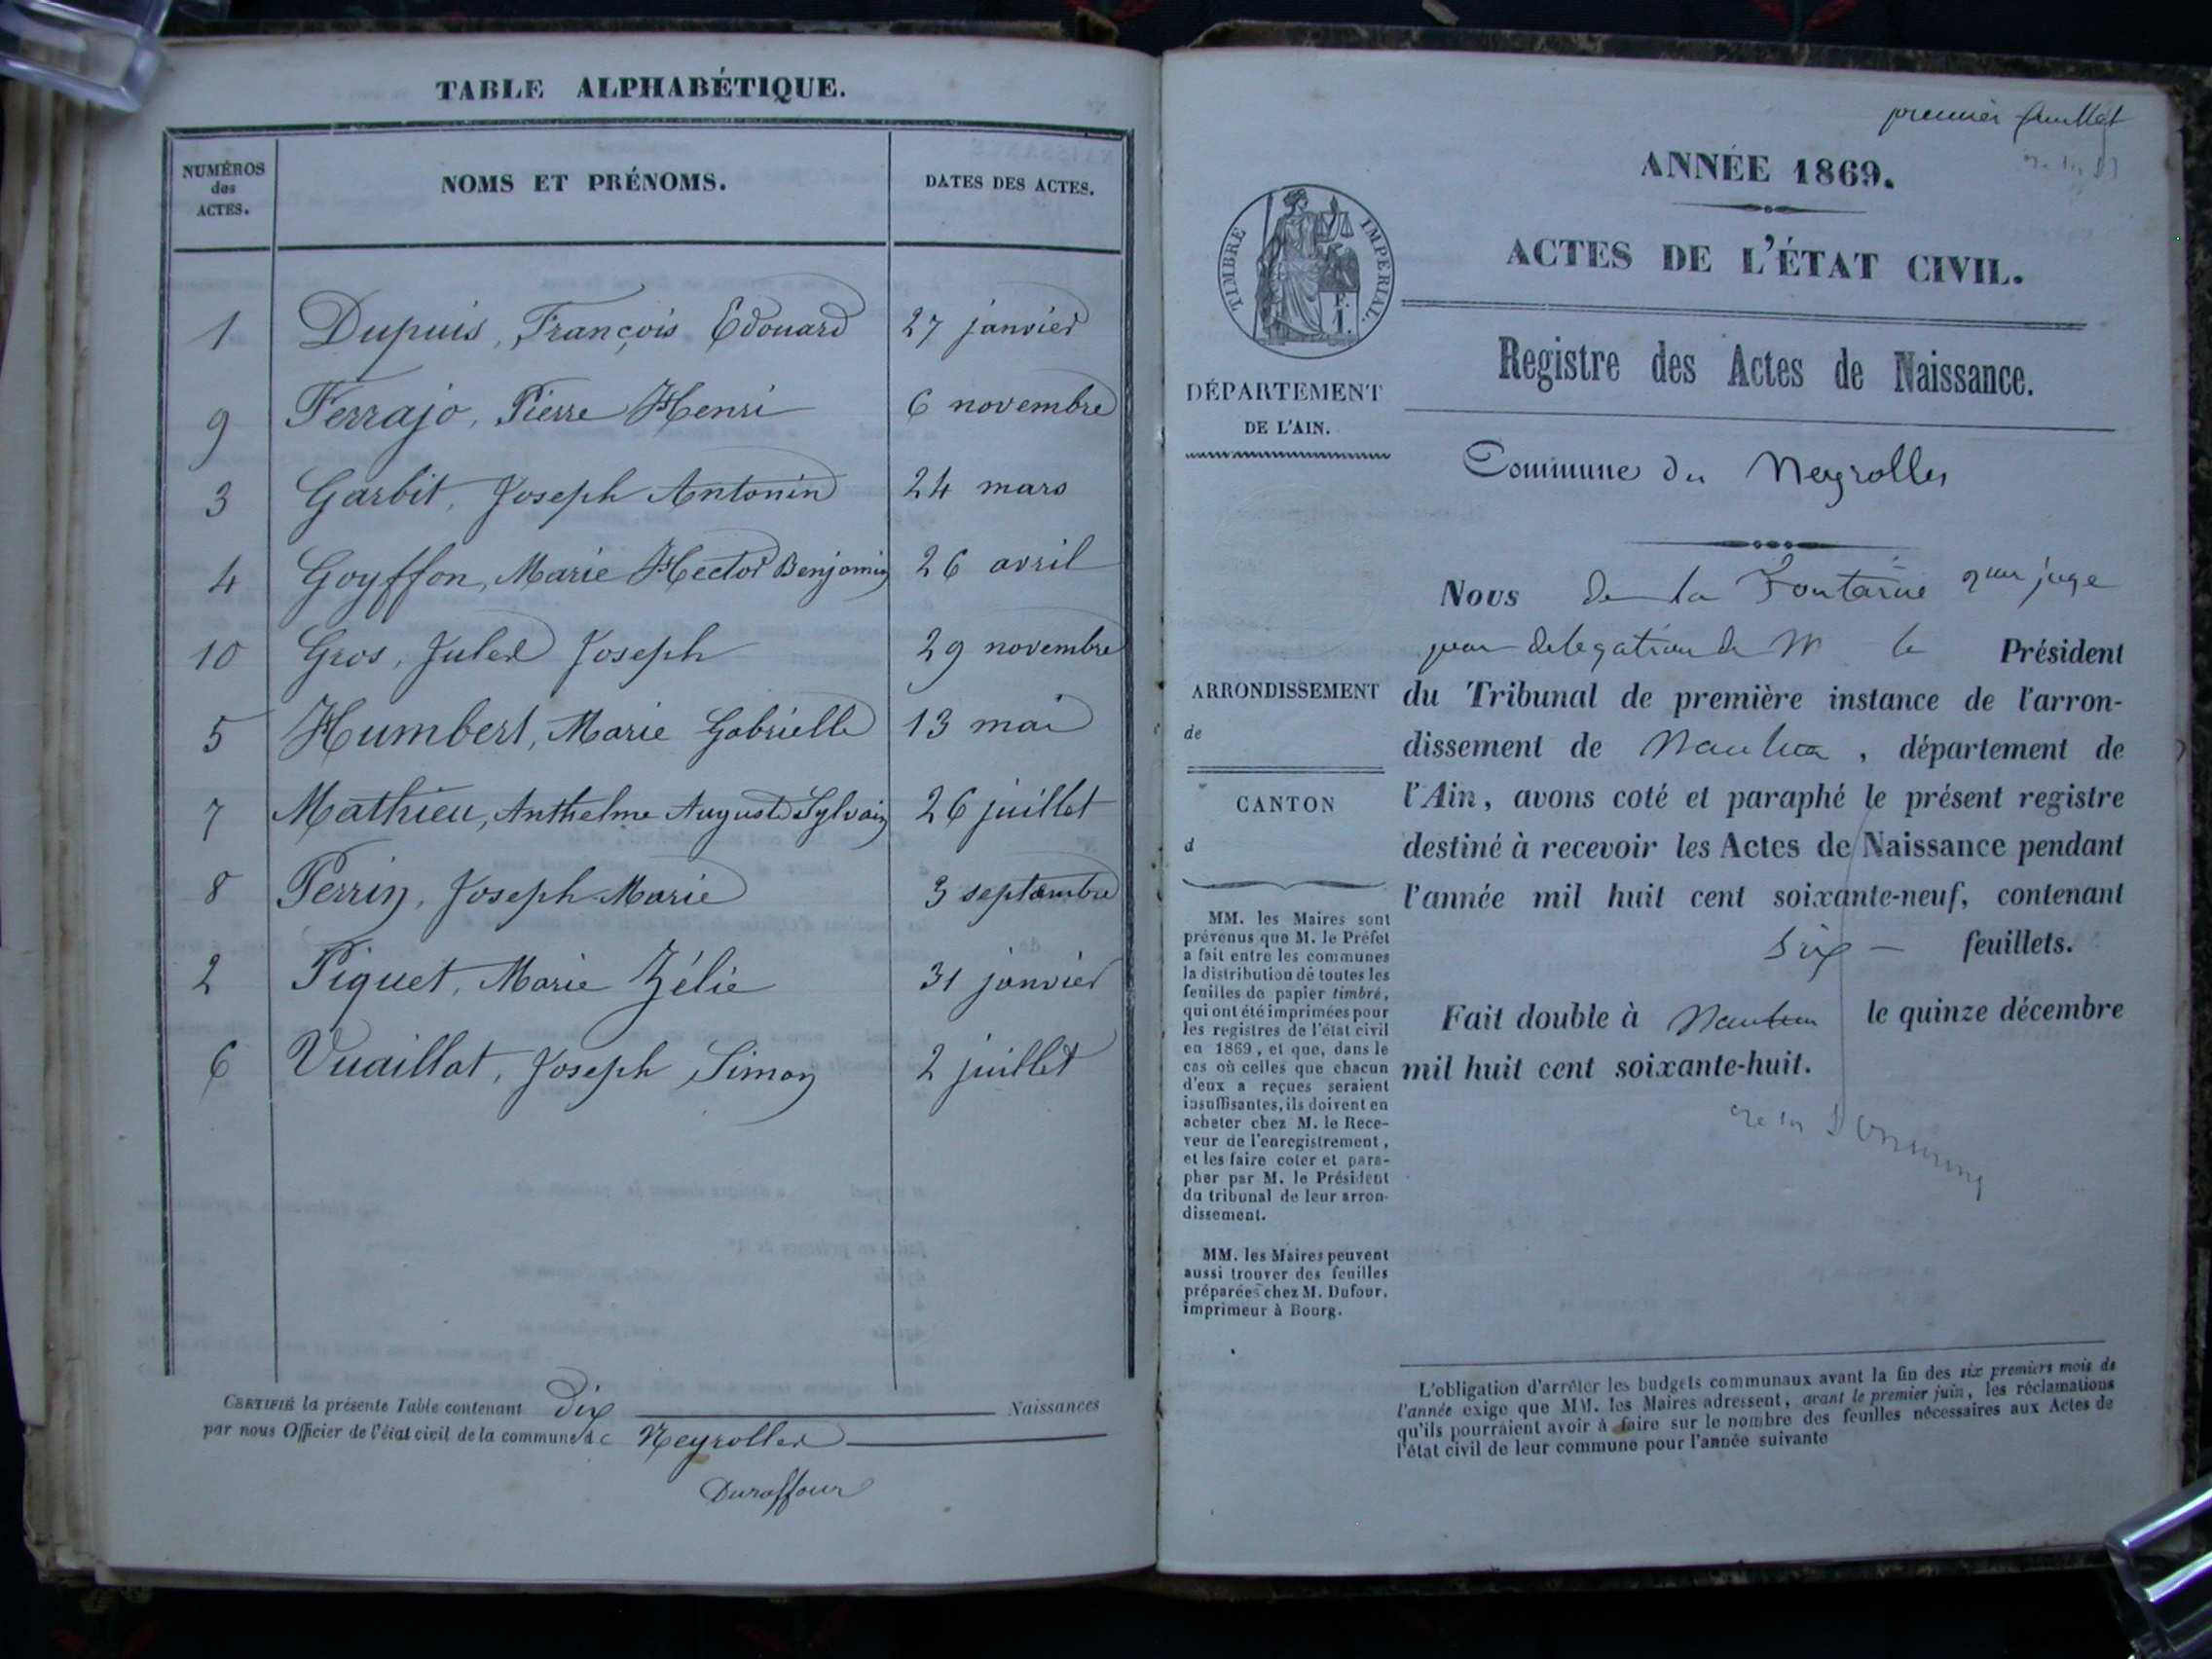 TABLE ALPHABÉTIQUE.
NUMÉROS des ACTES. NOMS ET PRÉNOMS. DATES DES ACTES.
1 Dupuis, François Edouard 27 janvier
9 Ferrajo, Pierre Henri 6 novembre
3 Garbit, Joseph Antonin 24 mars
4 Goyffon, Marie Hector Benjamin 26 avril
10 Gros, Jules Joseph 29 novembre
5 Humbert, Marie Gabrielle 13 mai
7 Mathieu, Anthelme Auguste Sylvain 26 juillet
8 Perrin, Joseph Marie 3 septembre
2 Piquet, Marie Zélie 31 janvier
6 Vuaillat, Joseph Simon 2 juillet
CERTIFIÉ la présente Table contenant dix Naissances
par nous Officier de l'état civil de la commune de Neyrolles
Duraffour
premier feuillet
ANNÉE 1869.
ACTES DE L'ÉTAT CIVIL.
TIMBRE IMPÉRIAL.
Registre des Actes de Naissance.
DÉPARTEMENT
DE L'AIN.
Commune du Neyrolles
Nous De la Fontaine juge
par delegation de M le Président
ARRONDISSEMENT
de
CANTON
d
du Tribunal de première instance de l'arron-
dissement de Nantua, département de
l'Ain, avons coté et paraphé le présent registre
destiné à recevoir les Actes de Naissance pendant
l'année mil huit cent soixante-neuf, contenant
six feuillets.
Fait double à Nantua le quinze décembre
mil huit cent soixante-huit.
MM. les Maires sont
prévenus que M. le Préfet
a fait entre les communes
la distribution de toutes les
feuilles de papier timbré,
qui ont été imprimées pour
les registres de l'état civil
en 1869, et que, dans le
cas où celles que chacun
d'eux a reçues seraient
insuffisantes, ils doivent en
acheter chez M. le Rece-
veur de l'enregistrement,
et les faire coter et para-
pher par M. le Président
du tribunal de leur arron-
dissement.
MM. les Maires peuvent
aussi trouver des feuilles
préparées chez M. Dufour,
imprimeur à Bourg.
L'obligation d'arrêter les budgets communaux avant la fin des six premiers mois de
l'année exige que MM. les Maires adressent, avant le premier juin, les réclamations
qu'ils pourraient avoir à faire sur le nombre des feuilles nécessaires aux Actes de
l'état civil de leur commune pour l'année suivante